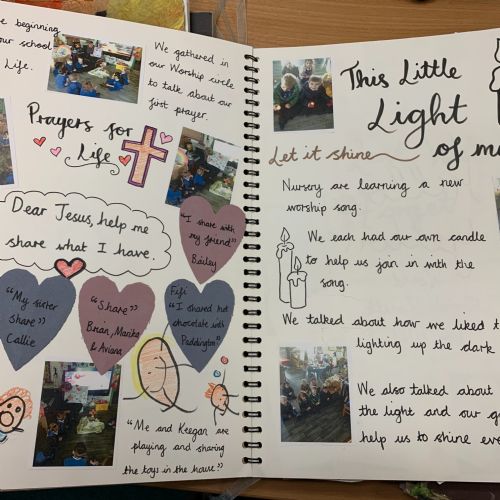 e beginning
our school
Life.
We gathered in
our Worship circle
to talk about our
first prayer.
Prayers for
Life
Dear Jesus, help me
share what I have.
"I share with
my friend"
Bailey
"My sister
share"
Callie
"Share"
Brian, Marika
& Aviana
Fifi
"I shared hot
chocolate with
Paddington"
"Me and Keegan are
playing and sharing
the toys in the house!"
This Little
Light
of m
Let it shine
Nursery are learning a new
worship song.
We each had our own candle
to help us join in with the
song.
We talked about how we liked t
lighting up the dark
We also talked about
the light and our g
help us to shine eve